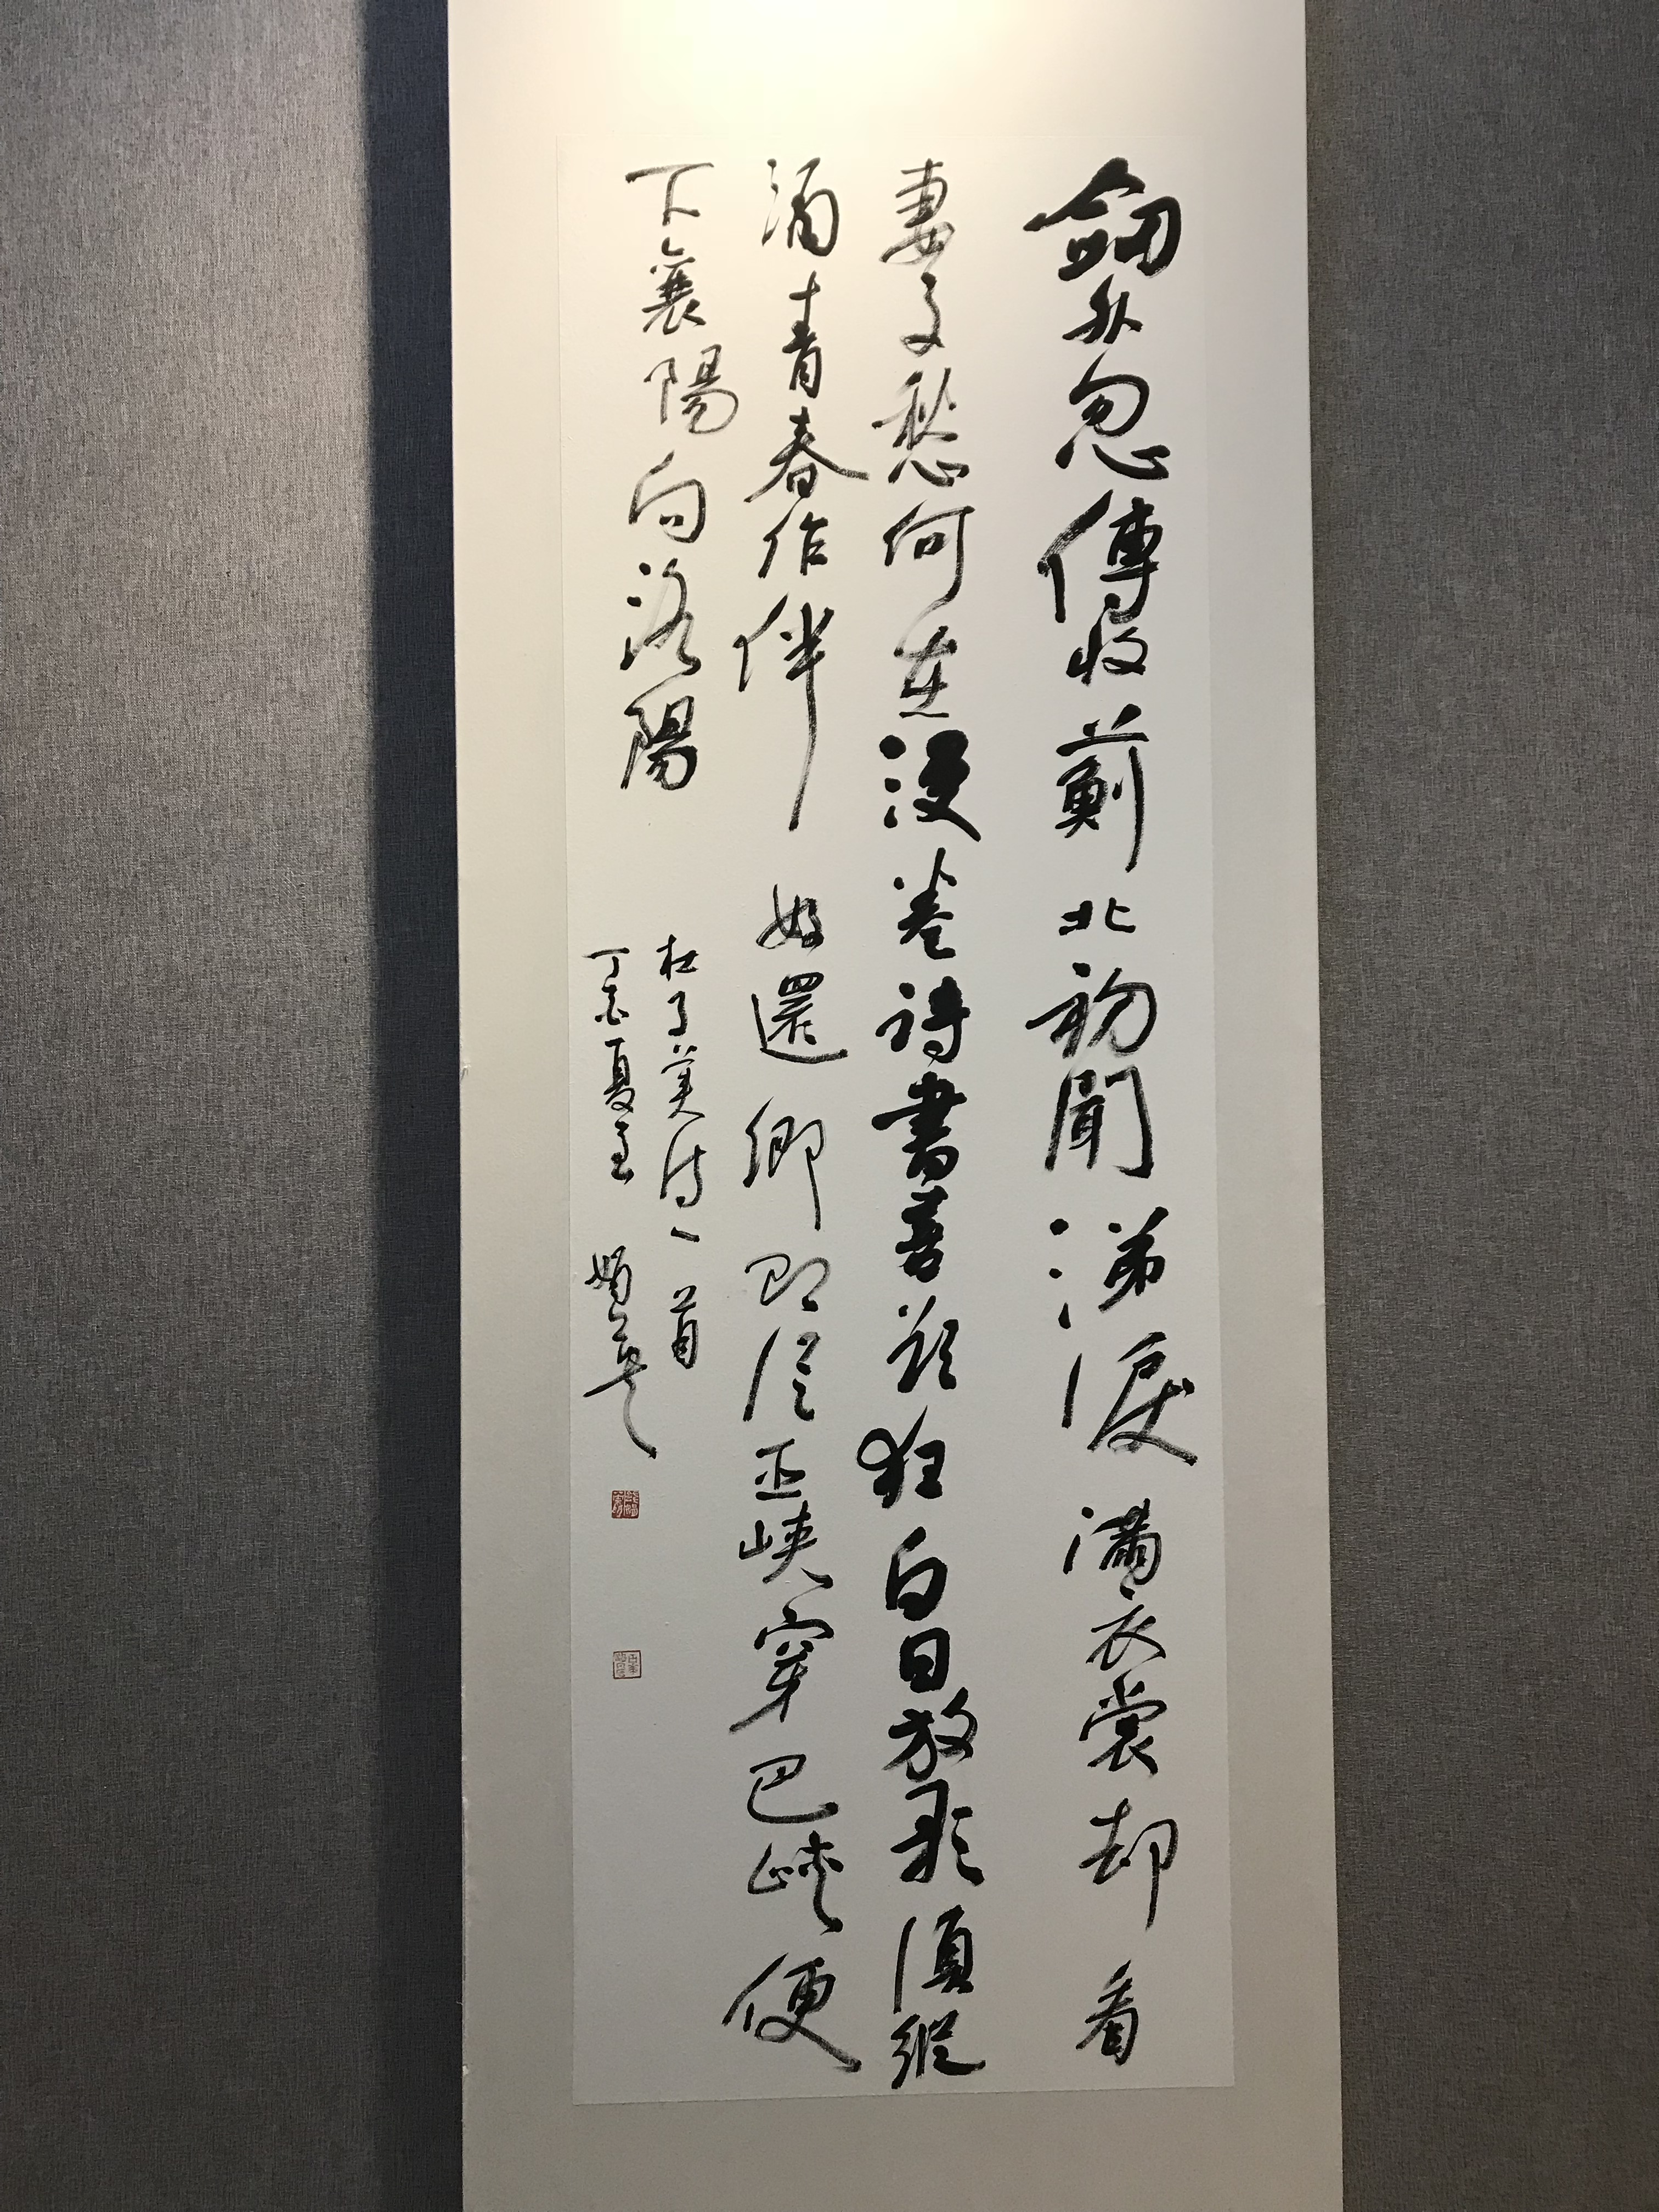 劒外忽傳收薊北初聞涕淚滿衣裳却看
妻子愁何在漫卷詩書喜欲狂白日放歌須縱
酒青春作伴好還鄉即從巫峽穿巴峽便
下襄陽向洛陽
杜子美诗一首
丁酉夏至